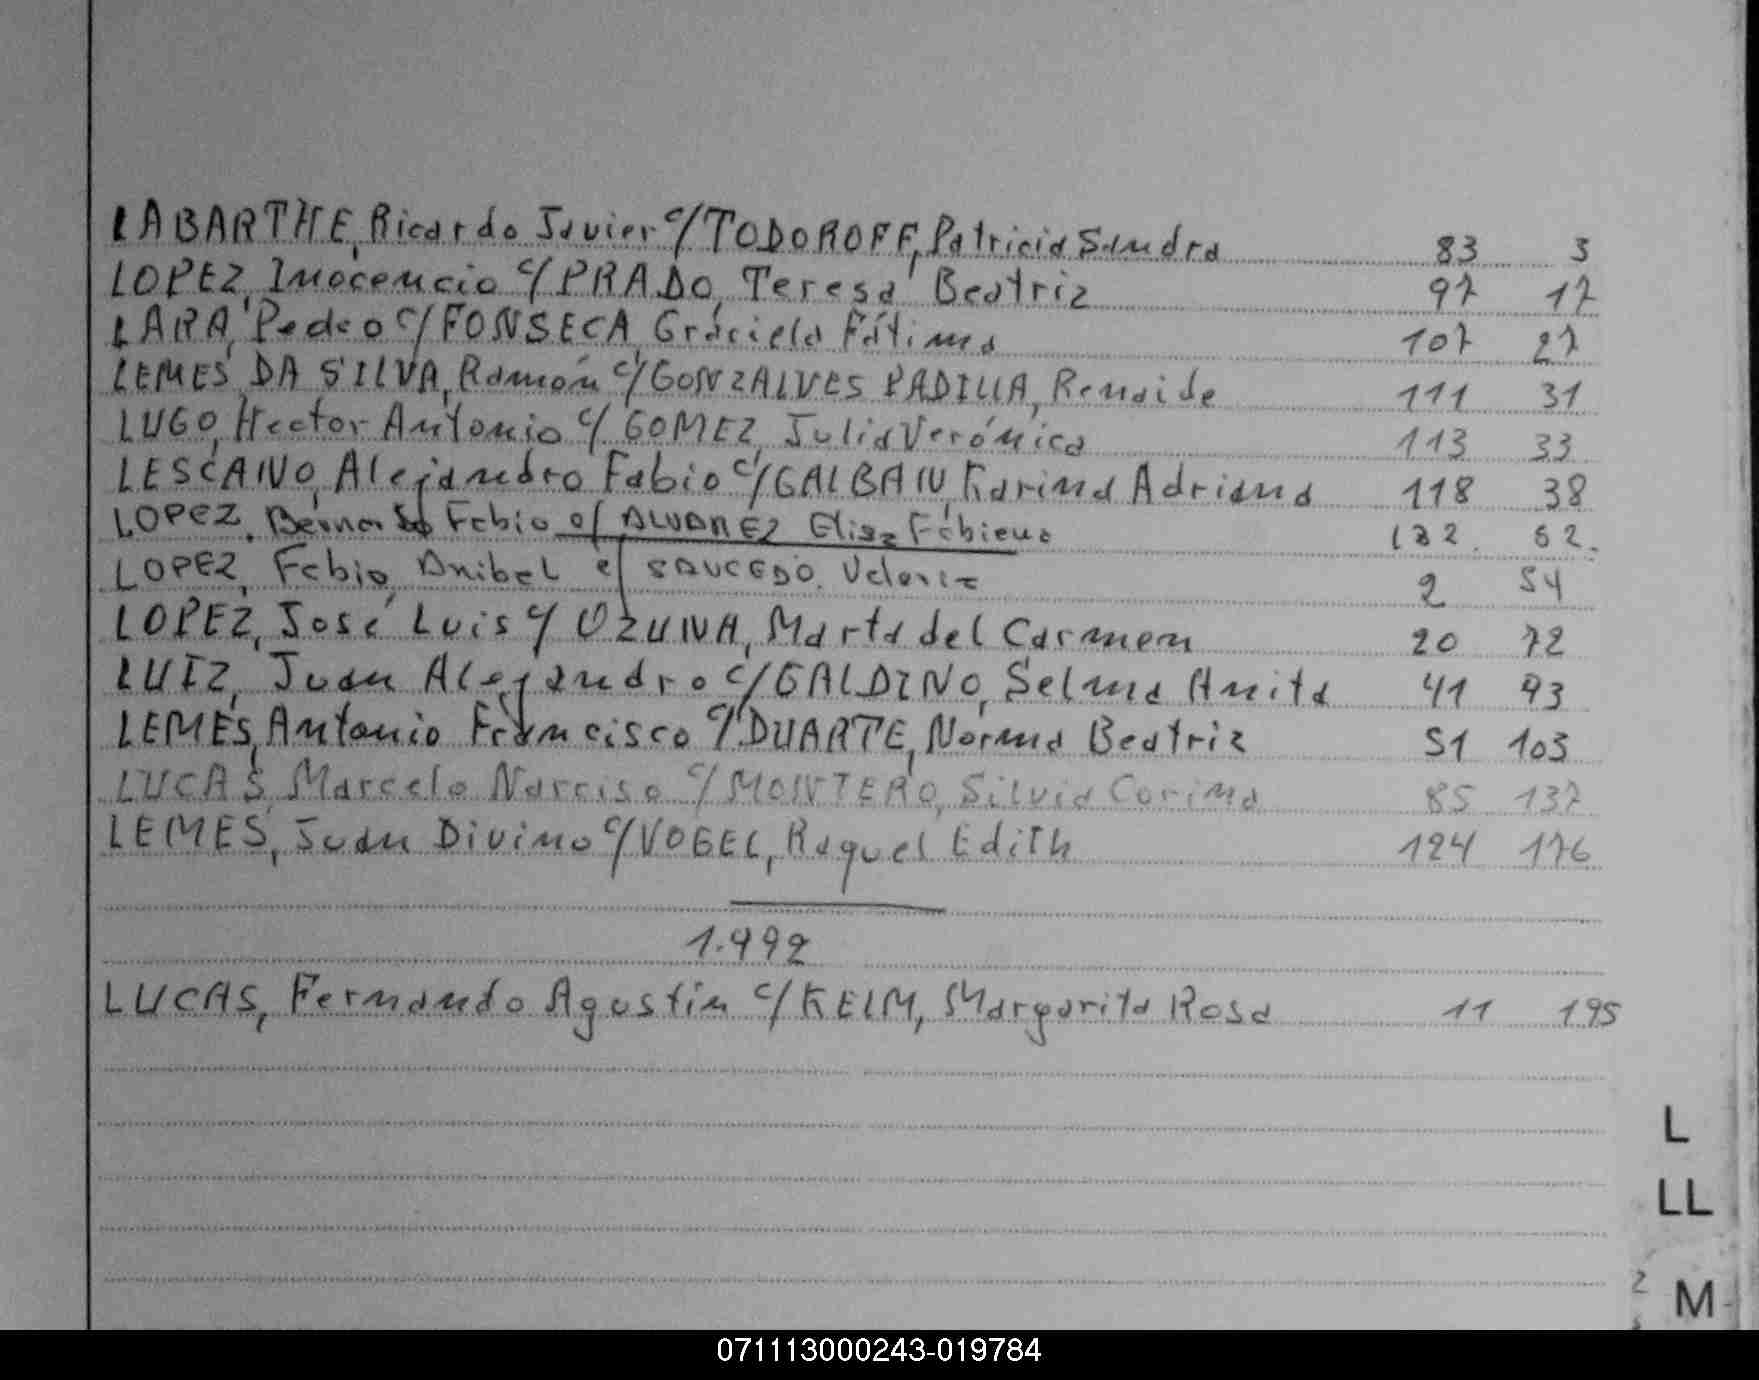 LABARTHE, Ricardo Javier c/ TODOROFF, Patricia Sandra 83 3
LOPEZ, Inocencio c/ PRADO, Teresa Beatriz 97 17
LARA, Pedro c/ FONSECA, Graciela Fátima 107 27
LEMES DA SILVA, Ramón c/ GONZALVES PADILLA, Renaide 111 31
LUGO, Hector Antonio c/ GOMEZ, Julia Verónica 113 33
LESCANO, Alejandro Fabio c/ GALBAN, Karina Adriana 118 38
LOPEZ, Bernardo Fabio c/ ALVAREZ Elisa Fabiana 132. 52.
LOPEZ, Fabio, Anibal c/ SAUCEDO, Valeria 2 54
LOPEZ, José Luis c/ OZUNA, Marta del Carmen 20 72
LUIZ, Juan Alejandro c/ GALDINO, Selma Anita 41 93
LEMES, Antonio Francisco c/ DUARTE, Norma Beatriz 51 103
LUCAS, Marcelo Narciso c/ MONTERO, Silvia Corina 85 137
LEMES, Juan Divino c/ VOGEL, Raquel Edith 124 176
1.992
LUCAS, Fernando Agustin c/ KELM, Margarita Rosa 11 195
L
LL
M
071113000243-019784